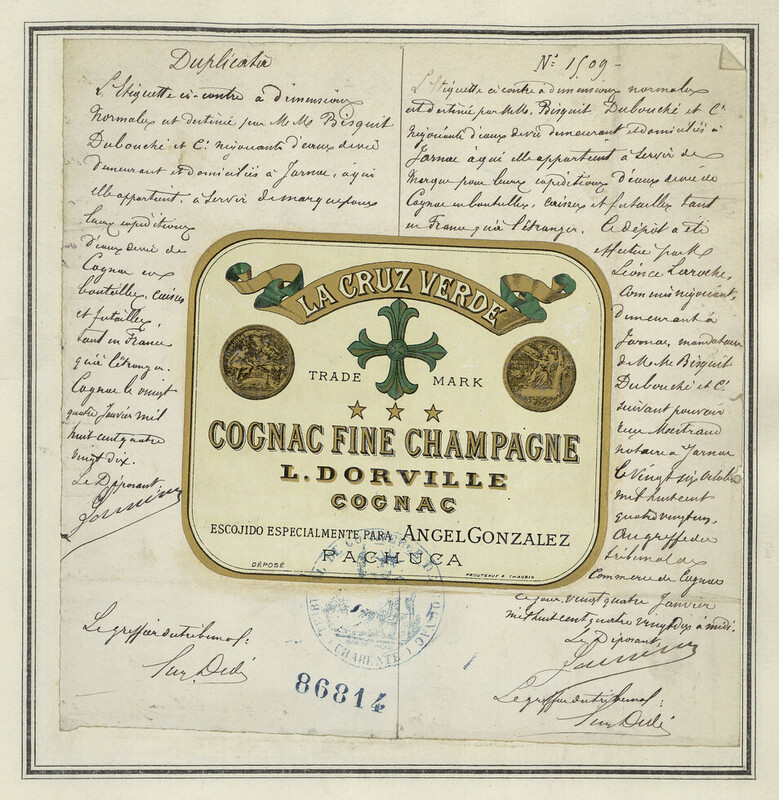 Duplicata
L'Etiquette ci-contre à dimensions
normales est destinée par M.M. Bisquit
Dubouché et Cie négociants d'eaux de vie
demeurant et domiciliés à Jarnac, à qui
elle appartient, à servir de marque pour
leurs expéditions
d'eaux de vie de
Cognac en
bouteilles, caisses
et futailles,
tant en France
qu'à l'étranger.
Cognac le vingt
quatre Janvier mil
huit cent quatre
vingt dix.
Le Déposant
Le greffier du tribunal:
N° 1509 -
L'Etiquette ci-contre à dimensions normales
est destinée par M.M. Bisquit Dubouché et Cie
négociants d'eaux de vie demeurant et domiciliés à
Jarnac à qui elle appartient à servir de
Marque pour leurs expéditions d'eaux de vie de
Cognac en bouteilles, caisses et futailles tant
en France qu'à l'étranger. Ce dépôt a été
effectué par M.
Léonce Laroche,
Commis négociant,
demeurant à
Jarnac, mandataire
de M.M. Bisquit
Dubouché et Cie
suivant pouvoir
reçu
notaire à Jarnac
le vingt six octobre
mil huit cent
quatre vingt
Au greffe du
tribunal de
Commerce de Cognac
ce jour vingt quatre Janvier
mil huit cent quatre vingt dix à midi.
Le Déposant
Le greffier du tribunal:
LA CRUZ VERDE
TRADE MARK
COGNAC FINE CHAMPAGNE
L. DORVILLE
COGNAC
ESCOJIDO ESPECIALMENTE PARA ANGEL GONZALEZ
PACHUCA
DÉPOSÉ
CHARENTE
86814